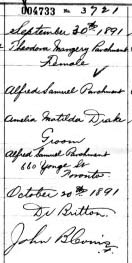 004733 No 3721
September 30th 1891
Theodora Margery Parchment
Female
Alfred Samuel Parchment
Amelia Matilda Drake
Groom
Alfred Samuel Parchment
660 Yonge St
Toronto
October 20th 1891
Dr Britton
John Blevins